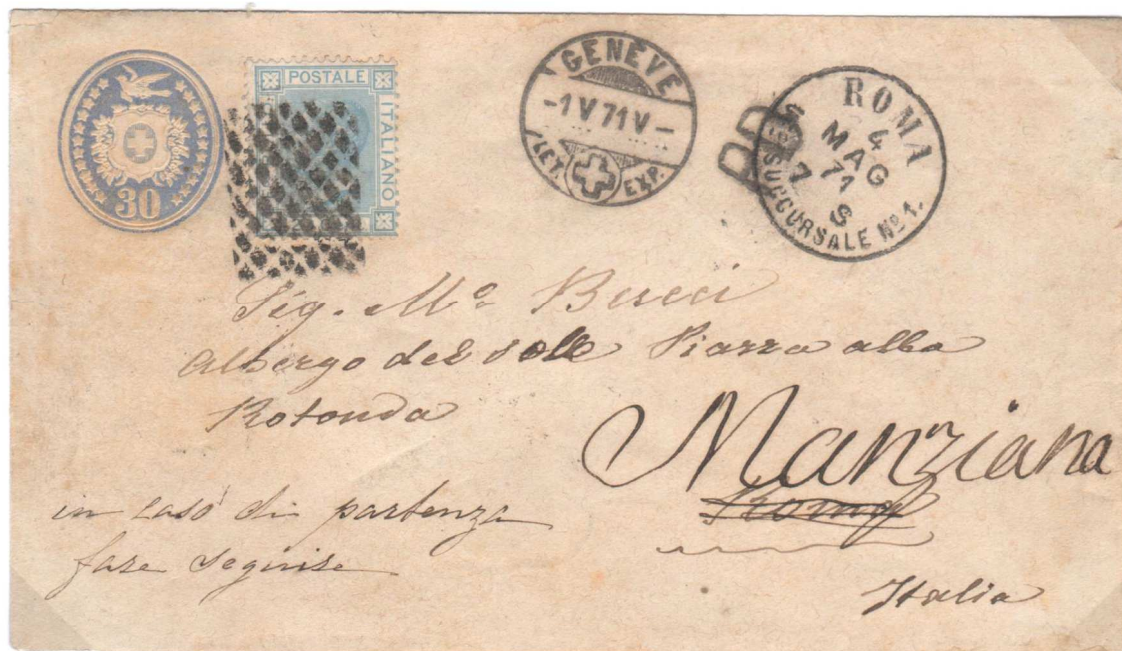 30
POSTALE
ITALIANO
GENÈVE
-1 V 71 V-
LET. EXP.
PD
ROMA
4
MAG
71
S
SUCCURSALE Nº 1.
Sig. Mº Bucci
Albergo del Sole Piazza alla
Rotonda
Manziana
Roma
in caso di partenza
fare seguire
Italia